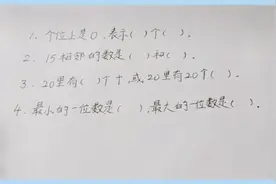 1、个位上是0,表示( )个( )。
2、15相邻的数是( )和( )。
3、20里有( )个十,或20里有20个( )。
4、最小的一位数是( ),最大的一位数是( )。